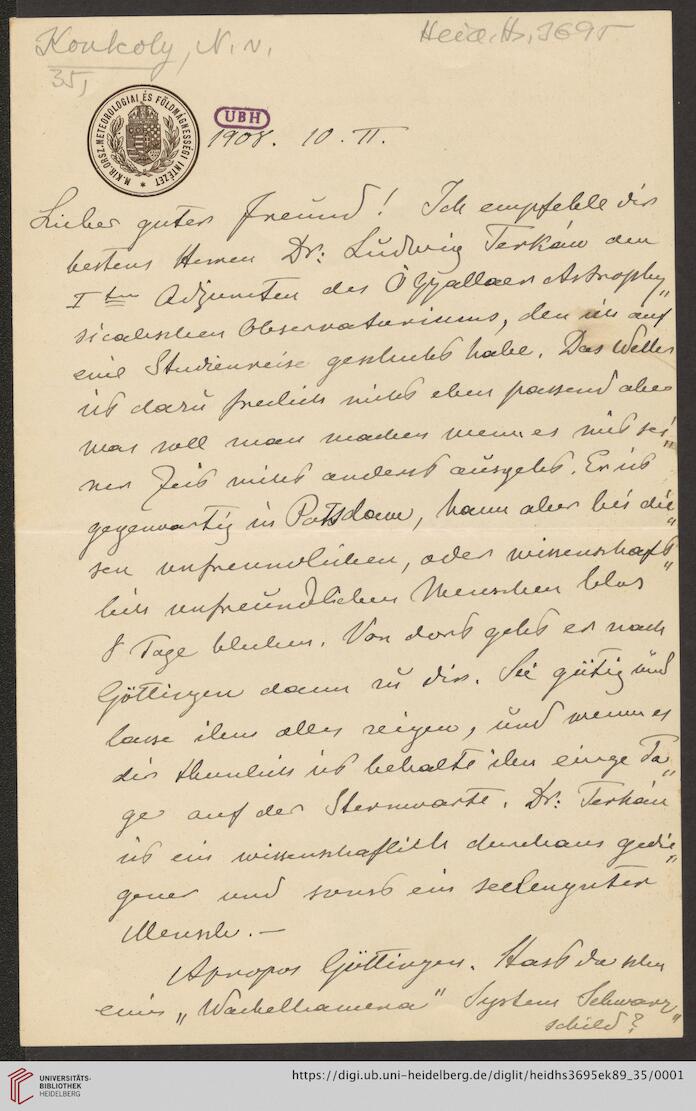 Konkoly, N. v.
Heid. Hs. 3695
35,
M. KIR. ORSZ. METEOROLOGIAI ÉS FÖLDMÁGNESSÉGI INTÉZET
UBH
1908. 10. II.
Lieber guter Freund! Ich empfehle dir
bestens Herren Dr: Ludwig Terkán den
I ten Adjuncten des Ógyallaer Astrophy„
sicalischen Observatoriums, den ich auf
eine Studienreise geschickt habe. Das Wetter
ist dazu freilich nicht eben passend aber
was soll man machen wenn es mit sei„
ner Zeit nicht anderst ausgeht. Er ist
gegenwartig in Potsdam, kann aber bei die„
sen unfreundlichen, oder wissenschaft„
lich unfreundlichen Menschen blos
8 Tage bleiben. Von dort geht er nach
Göttingen dann zu dir. Sei gütig und
lasse ihm alles zeigen, und wenn es
dir thunlich ist behalte ihn einge Ta„
ge auf der Sternwarte. Dr: Terkán
ist ein wissenschaflich durchaus gedie„
gener und sonst ein seelenguter
Mensch. —
Apropos Göttingen. Hast du schon
eine „Wackelkamera" System Schwarz„
schild?
UNIVERSITÄTS-
BIBLIOTHEK
HEIDELBERG
https://digi.ub.uni-heidelberg.de/diglit/heidhs3695ek89_35/0001